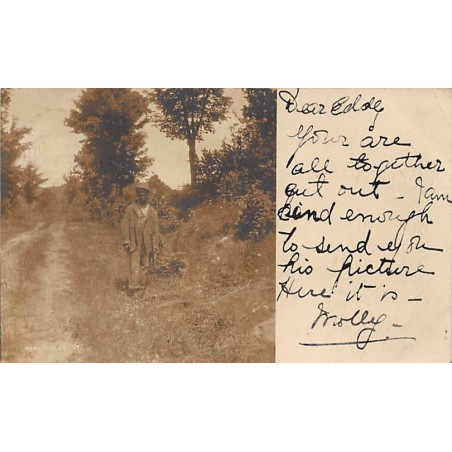 Dear Eddy
Your are
all together
out out - I am
kind enough
to send you
his picture
Here it is -
Molly -